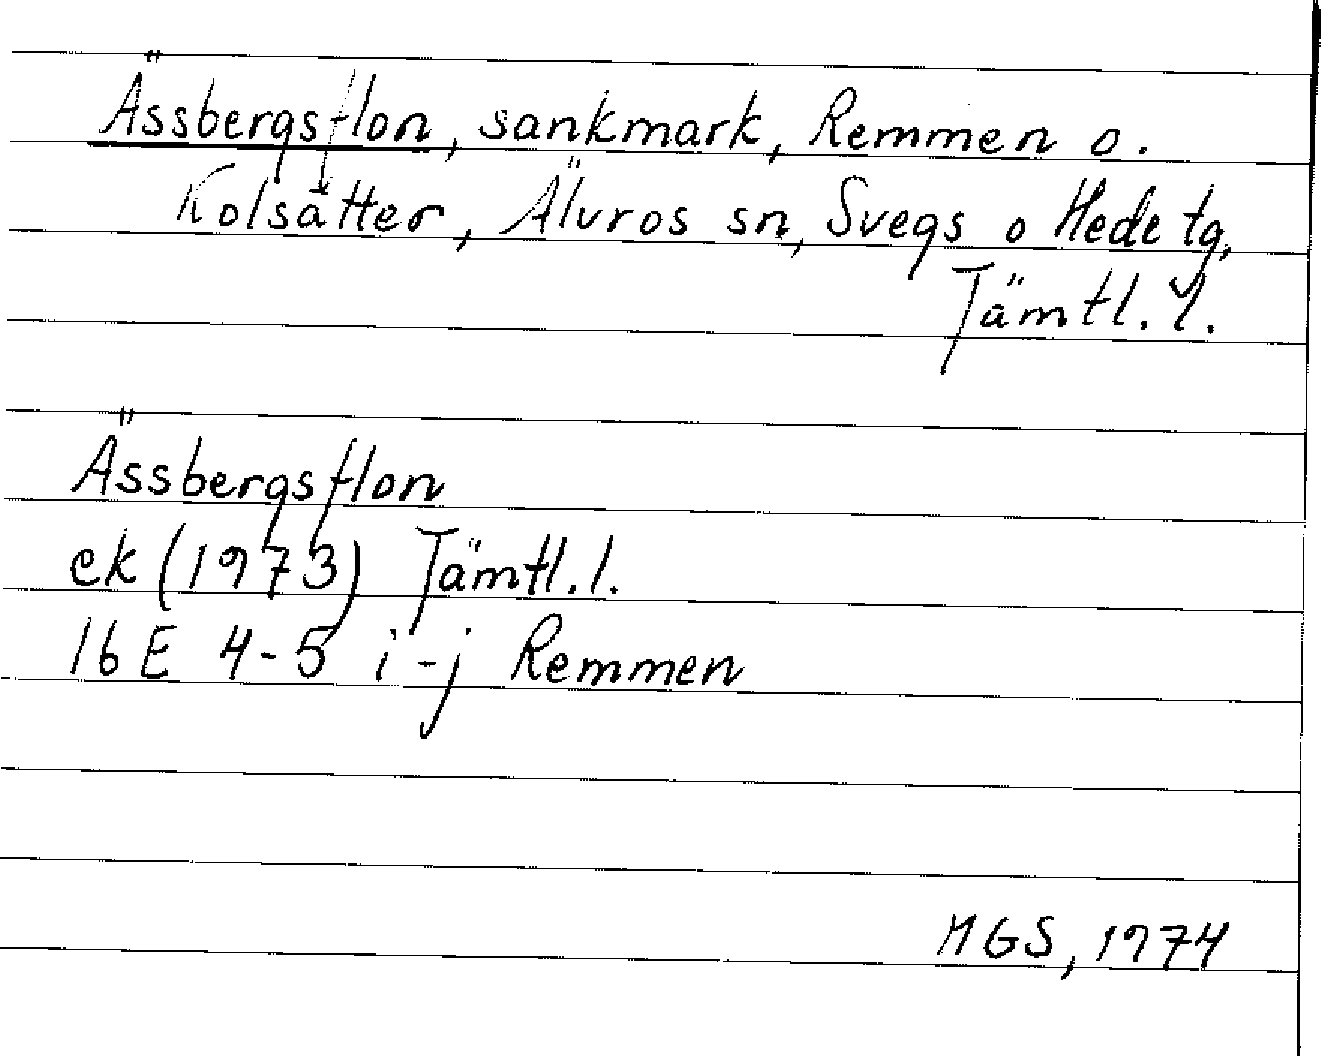 Ässbergsflon, sankmark, Remmen o.
Kolsätter, Älvros sn, Svegs o Hede tg,
Jämtl. l.
Ässbergsflon
ek (1973) Jämtl. l.
16 E 4-5 i-j Remmen
MGS, 1974